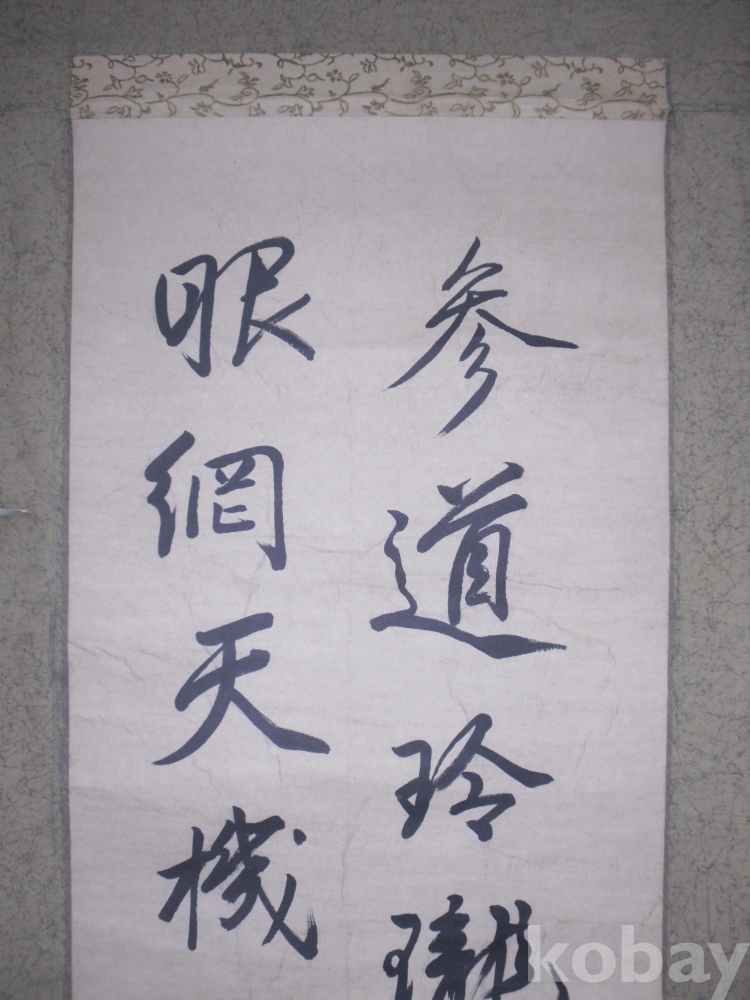 参道玲瓏
眼網天機
kobay